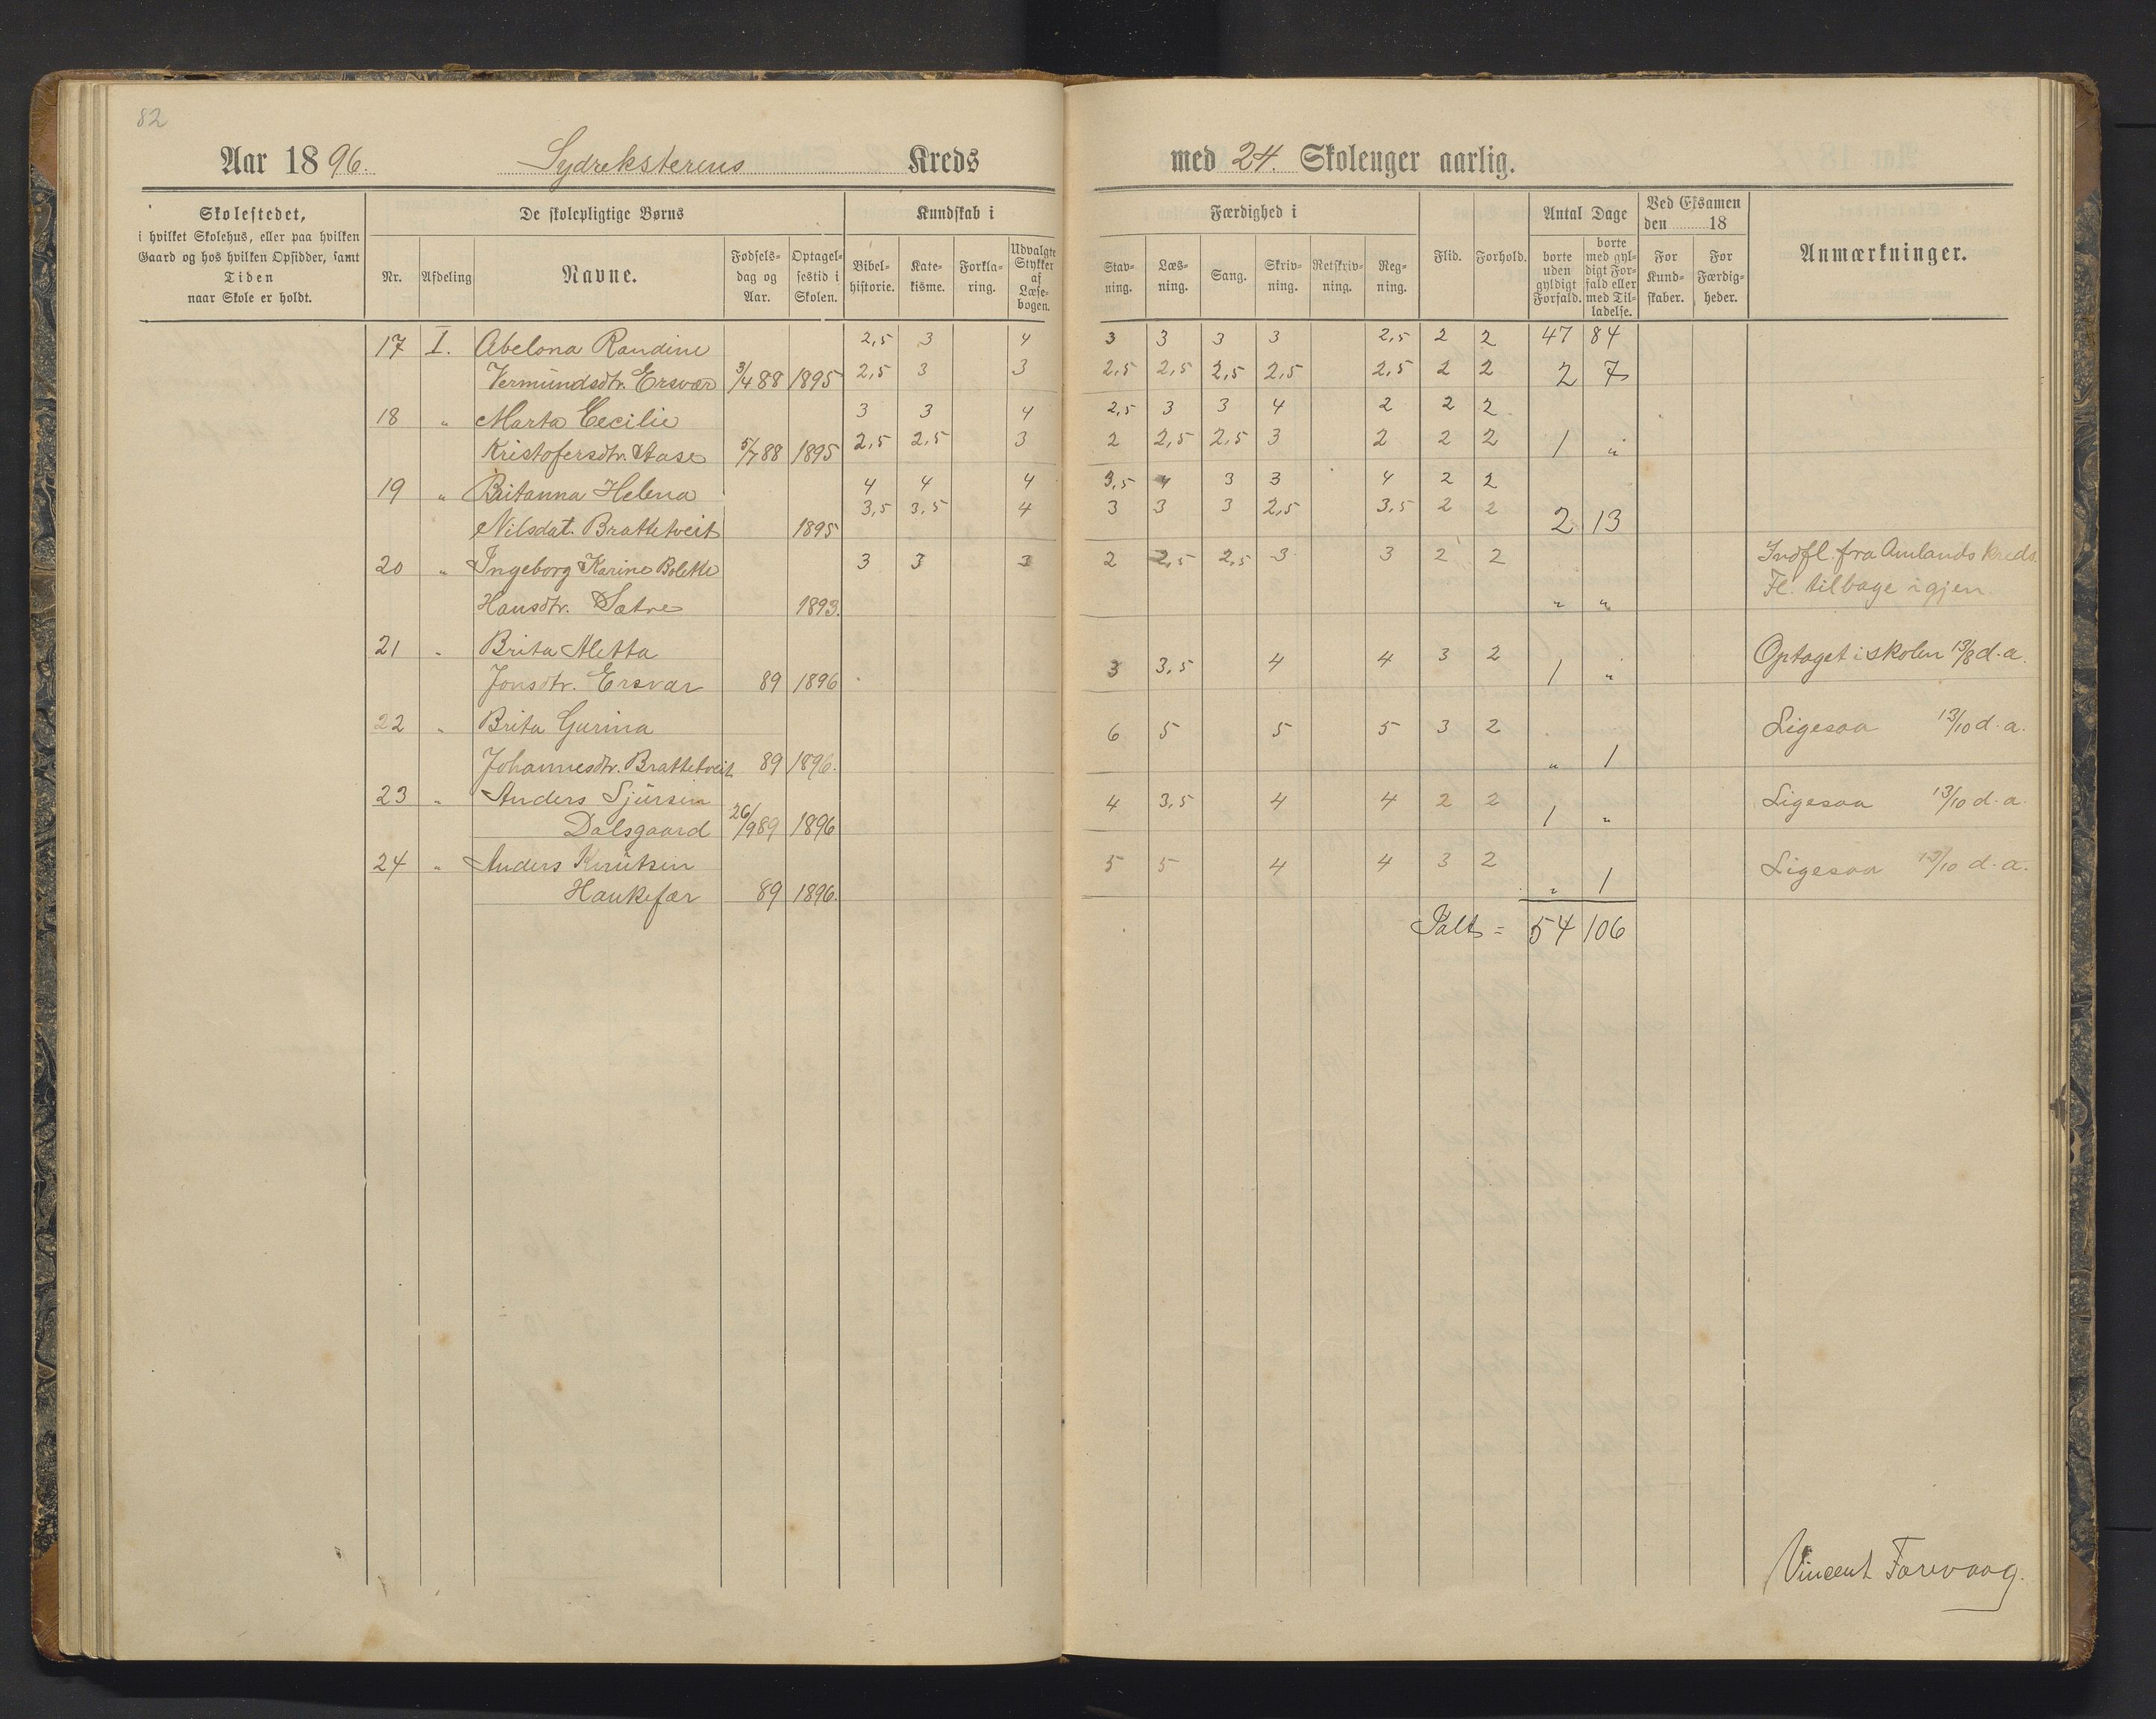 82
Aar 1896. Sydreksterens Kreds med 24. Skoleuger aarlig.
Skolestedet,
i hvilket Skolehus, eller paa hvilken
Gaard og hos hvilken Opsidder, samt
Tiden
naar Skole er holdt.
De skolepligtige Børns
Nr. Afdeling Navne. Fødsels-dag og Aar. Optagel-sestid i Skolen.
Kundskab i
Bibel-historie. Kate-kisme. Forkla-ring. Udvalgte Stykker af Læse-bogen.
Færdighed i
Stav-ning. Læs-ning. Sang. Skriv-ning. Retskriv-ning. Reg-ning.
Flid. Forhold.
Antal Dage
borte uden gyldigt Forfald. borte med gyl-digt For-fald eller med Til-ladelse.
Ved Eksamen den 18
For Kund-skaber. For Færdig-heder.
Anmærkninger.
17 I. Abelona Randine 2,5 3 4 3 3 3 3 2,5 2 2 47 84
Vermundsdtr. Ersvær 3/4 88 1895 2,5 3 3 2,5 2,5 2,5 2,5 2,5 2 2 2 7
18 " Marta Cecilie 3 3 4 2,5 3 3 4 2 2 2
Kristofersdtr. Aase 5/7 88 1895 2,5 2,5 3 2 2,5 2,5 3 2 2 2 1 "
19 " Britanna Helena 4 4 4 3,5 4 3 3 4 2 2
Nilsdat. Brattetveit 1895 3,5 3,5 4 3 3 3 2,5 3,5 2 2 2 13
20 " Ingeborg Karine Bolette 3 3 3 2 2,5 2,5 3 3 2 2 Indfl. fra Amlands Kreds.
Hansdtr. Sætre 1893. " " Fl. tilbage igjen.
21 " Brita Aletta 3 3,5 4 4 3 2 Optaget i skolen 13/8 d. a.
Jonsdtr. Ersvær 89 1896 1 "
22 " Brita Gurina 6 5 5 5 3 2 Ligesaa 13/10 d. a.
Johannesdtr. Brattetveit 89 1896. " 1
23 " Anders Sjursen 4 3,5 4 4 2 2 Ligesaa 13/10 d. a.
Dalsgaard 26/9 89 1896 1 "
24 " Anders Knutsen 5 5 4 4 3 2 Ligesaa 13/10 d. a.
Haukefær 89 1896. " 1
Ialt = 54 106
Vincent Farevaag.